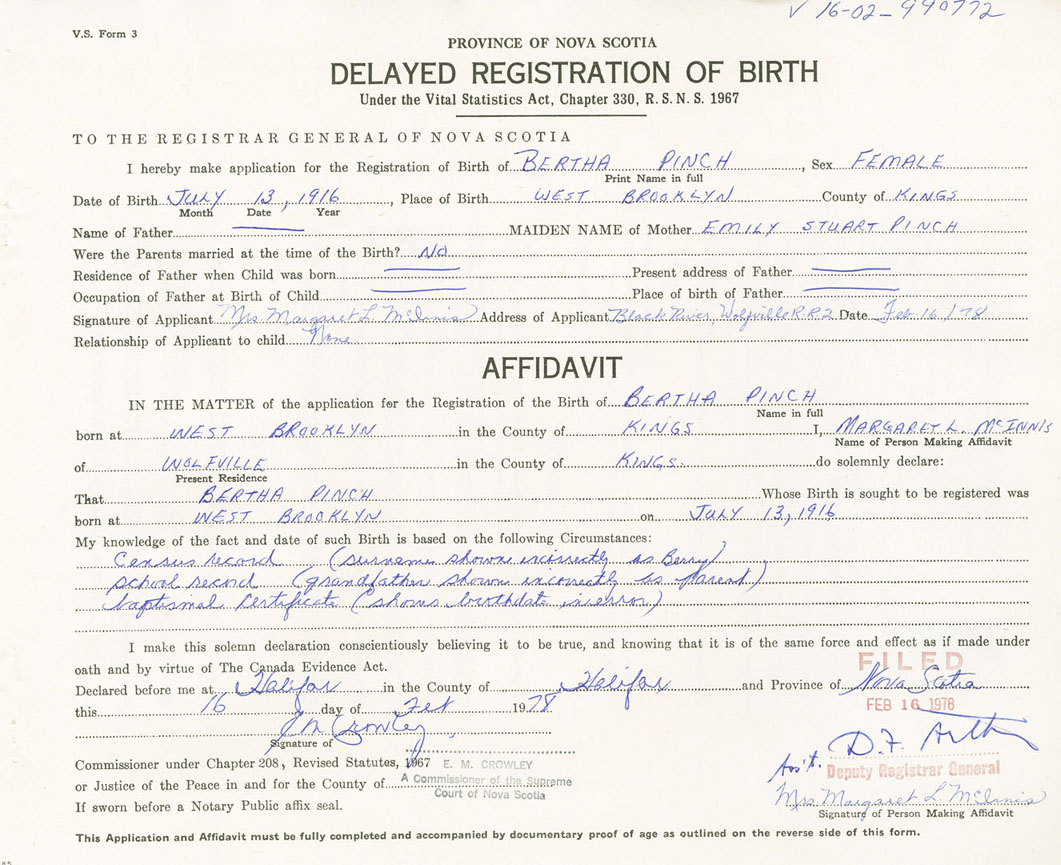 V 16-02-990772
V.S. Form 3
PROVINCE OF NOVA SCOTIA
DELAYED REGISTRATION OF BIRTH
Under the Vital Statistics Act, Chapter 330, R. S. N. S. 1967
TO THE REGISTRAR GENERAL OF NOVA SCOTIA
I hereby make application for the Registration of Birth of BERTHA PINCH, Sex FEMALE
Print Name in full
Date of Birth JULY 13, 1916, Place of Birth WEST BROOKLYN County of KINGS
Month Date Year
Name of Father MAIDEN NAME of Mother EMILY STUART PINCH
Were the Parents married at the time of the Birth? NO
Residence of Father when Child was born Present address of Father
Occupation of Father at Birth of Child Place of birth of Father
Signature of Applicant Mrs Margaret L McInnis Address of Applicant Black River, Wolfville R.R.2 Date Feb 16/78
Relationship of Applicant to child None
AFFIDAVIT
IN THE MATTER of the application for the Registration of the Birth of BERTHA PINCH
Name in full
born at WEST BROOKLYN in the County of KINGS I, MARGARET L. MCINNIS
Name of Person Making Affidavit
of WOLFVILLE in the County of KINGS. do solemnly declare:
Present Residence
That BERTHA PINCH Whose Birth is sought to be registered was
born at WEST BROOKLYN on JULY 13, 1916
My knowledge of the fact and date of such Birth is based on the following Circumstances:
Census record (surname shown incorrectly as Berry)
school record (grandfather shown incorrectly as parent)
baptismal certificate (shows birthdate in error)
I make this solemn declaration conscientiously believing it to be true, and knowing that it is of the same force and effect as if made under
oath and by virtue of The Canada Evidence Act.
FILED
Declared before me at Halifax in the County of Halifax and Province of Nova Scotia
this 16 day of Feb 1978
FEB 16 1978
E M Crowley
Signature of
D.F.
Commissioner under Chapter 208, Revised Statutes, 1967 E. M. CROWLEY
Ass't. Deputy Registrar General
or Justice of the Peace in and for the County of A Commissioner of the Supreme
Court of Nova Scotia
Mrs Margaret L McInnis
If sworn before a Notary Public affix seal.
Signature of Person Making Affidavit
This Application and Affidavit must be fully completed and accompanied by documentary proof of age as outlined on the reverse side of this form.